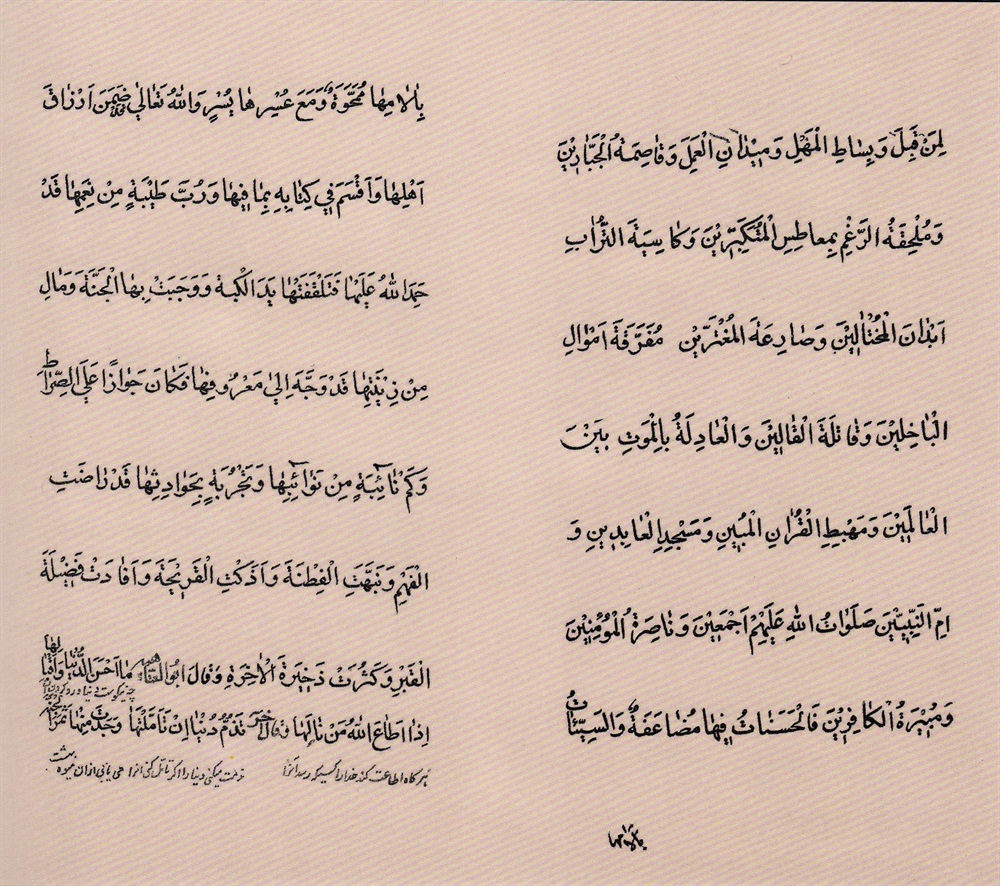 لِمَنْ قَبِلَ وَبِسَاطِ الْمَهَلِ وَمَيْدَانِ الْعَمَلِ وَقَاصِمَةُ الْجَبَّارِيْنَ
وَمُلْحِقَةُ الرَّغْمِ بِمعاطِسِ الْمُتَكَبِّرِيْنَ وَكَاسِيَةَ التُّرَابِ
اَبْدَانَ الْمُخْتَالِيْنَ وَصَارِعَةَ الْمُغْتَرِّيْنَ مُفَرَّقَةَ اَمْوَالِ
الْبَاخِلِيْنَ وَقَاتِلَةَ الْقَالِيْنَ وَالْعَادِلَةُ بِالْمَوْتِ بَيْنَ
الْعَالَمِيْنَ وَمَهْبِطِ الْقُرْاٰنِ الْمُبِيْنِ وَمَسْجِدِ الْعَابِدِيْنِ وَ
اُمِّ النَّبِيِّيْنَ صَلَوَاتُ اللهِ عَلَيْهِمْ اَجْمَعِيْنَ وَنَاصِرَةُ الْمُؤْمِنِيْنَ
وَمُبِيْرَةُ الْكَافِرِيْنَ فَالْحَسَنَاتُ فِيْهَا مُضَاعَفَةٌ وَالسَّيِّئَاتُ
بِاٰلَامِهَا
بِاٰلَامِهَا مُمْحَوَّةٌ وَمَعَ عُسْرِهَا يُسْرٍ وَاللهُ تَعَالٰي ضَمِنَ اَرْزَاقَ
اَهْلِهَا وَاَقْسَمَ فِي كِتَابِهِ بِمَا فِيْهَا وَرُبَّ طَيِّبَةٍ مِنْ نِعَمِهَا قَدْ
حَمِدَ اللهُ عَلَيْهَا فَتَلَقَّفَتْهَا يَدَ الْكَتَبة وَوَجَبَتْ بِهَا الْجَنَّةَ وَمَالِ
مِنْ زِيْنَتِهَا قَدْ وَجَّهَ اِلٰي مَعْرُوفِهَا فَكَانَ جَوَازًا عَلَي الصِّرَاطِ
وَكَمْ نَائِبَةٍ مِنْ نَوَائِبِهَا وَتَجْرُبَةٍ بِحَوَادِثِهَا قَدْ رَاضَتِ
الْفَهْمِ وَنَبَّهَتِ الْفِطْنَةَ وَاَذَكْتِ الْقَرِيْحَةَ وَاَفَادَتْ فَضِيْلَةَ
الْقَبْرِ وَكَثُرَتْ ذَخِيْرَةَ الْاٰخِرَةِ وَقَالَ اَبُو مَا اَحْسَنَ الدُّنْيَا وَاِقْبَالِهَا
چه نیکوست دنیا
اِذَا اَطَاعَ اللهُ مَنْ نَالَهَا وَقَالَ آخَرُ تَذُمُّ دُنْيَا اِنْ تَأَمَّلْتَهَا وَجَدْتَ مِنْهَا ثَمَرَ الْجَنَّةِ
هر گاه اطاعت کند خدا را کسیکه رسد آنرا مذمت میکنی دنیا را اگر تامل کنی آنرا می یابی از ان میوه بهشت